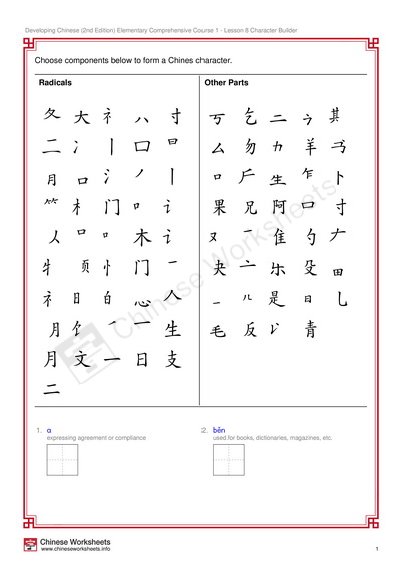 Developing Chinese (2nd Edition) Elementary Comprehensive Course 1 - Lesson 8 Character Builder
Choose components below to form a Chines character.
Radicals
夂 大 礻 八 寸
二 冫 丨 口 罒
月 口 氵 丿 丨
⺮ 木 门 口 讠
人 口 口 木 讠
牜 页 忄 门 一
礻 日 白 心 人
月 饣 一 生
月 文 一 日 支
二
Other Parts
丂 乞 二 其
厶 勿 力 羊
口 生 卜
果 兄 阿 口 寸
又 一 隹 勺
夬 亠 乐 殳 田
一 儿 是 日 乚
毛 反 青
Chinese Worksheets
1. a
expressing agreement or compliance
2. běn
used for books, dictionaries, magazines, etc.
Chinese Worksheets
www.chineseworksheets.info
1